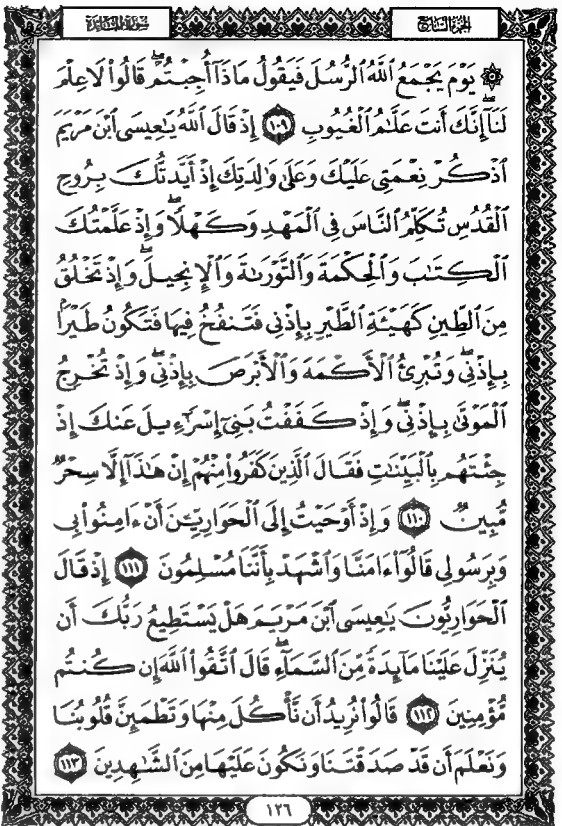 سورة المائدة
الجزء السابع
۞ يَوْمَ يَجْمَعُ ٱللَّهُ ٱلرُّسُلَ فَيَقُولُ مَاذَآ أُجِبْتُمْۖ قَالُوا۟ لَا عِلْمَ
لَنَآۖ إِنَّكَ أَنتَ عَلَّٰمُ ٱلْغُيُوبِ ١٠٩ إِذْ قَالَ ٱللَّهُ يَٰعِيسَى ٱبْنَ مَرْيَمَ
ٱذْكُرْ نِعْمَتِى عَلَيْكَ وَعَلَىٰ وَٰلِدَتِكَ إِذْ أَيَّدتُّكَ بِرُوحِ
ٱلْقُدُسِ تُكَلِّمُ ٱلنَّاسَ فِى ٱلْمَهْدِ وَكَهْلًاۖ وَإِذْ عَلَّمْتُكَ
ٱلْكِتَٰبَ وَٱلْحِكْمَةَ وَٱلتَّوْرَىٰةَ وَٱلْإِنجِيلَۖ وَإِذْ تَخْلُقُ
مِنَ ٱلطِّينِ كَهَيْـَٔةِ ٱلطَّيْرِ بِإِذْنِى فَتَنفُخُ فِيهَا فَتَكُونُ طَيْرًۢا
بِإِذْنِىۖ وَتُبْرِئُ ٱلْأَكْمَهَ وَٱلْأَبْرَصَ بِإِذْنِىۖ وَإِذْ تُخْرِجُ
ٱلْمَوْتَىٰ بِإِذْنِىۖ وَإِذْ كَفَفْتُ بَنِىٓ إِسْرَٰٓءِيلَ عَنكَ إِذْ
جِئْتَهُم بِٱلْبَيِّنَٰتِ فَقَالَ ٱلَّذِينَ كَفَرُوا۟ مِنْهُمْ إِنْ هَٰذَآ إِلَّا سِحْرٌ
مُّبِينٌ ١١٠ وَإِذْ أَوْحَيْتُ إِلَى ٱلْحَوَارِيِّـۧنَ أَنْ ءَامِنُوا۟ بِى
وَبِرَسُولِى قَالُوٓا۟ ءَامَنَّا وَٱشْهَدْ بِأَنَّنَا مُسْلِمُونَ ١١١ إِذْ قَالَ
ٱلْحَوَارِيُّونَ يَٰعِيسَى ٱبْنَ مَرْيَمَ هَلْ يَسْتَطِيعُ رَبُّكَ أَن
يُنَزِّلَ عَلَيْنَا مَآئِدَةً مِّنَ ٱلسَّمَآءِۖ قَالَ ٱتَّقُوا۟ ٱللَّهَ إِن كُنتُم
مُّؤْمِنِينَ ١١٢ قَالُوا۟ نُرِيدُ أَن نَّأْكُلَ مِنْهَا وَتَطْمَئِنَّ قُلُوبُنَا
وَنَعْلَمَ أَن قَدْ صَدَقْتَنَا وَنَكُونَ عَلَيْهَا مِنَ ٱلشَّٰهِدِينَ ١١٣
١٢٦